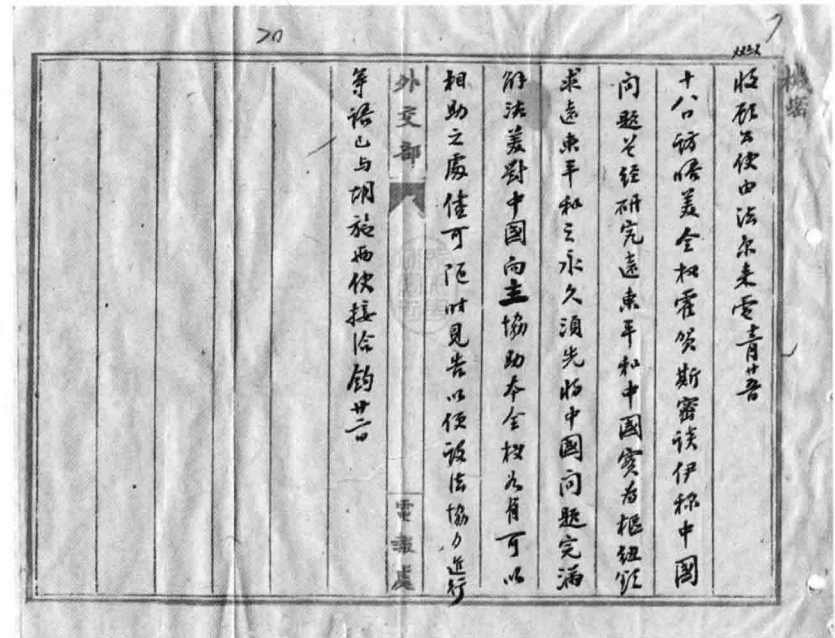 機密
20
收顧公使由法京来電
十八日訪晤美全权霍贺斯密谈伊称中國
问题並经研究遠東平和中國實为樞纽欲
求遠東平和之永久須先將中國问题完滿
解决美對中國向主協助本全权如有可以
相助之處儘可随时見告以便設法協力進行
外交部 電報處
等語已与胡施两使接洽鈞廿二日